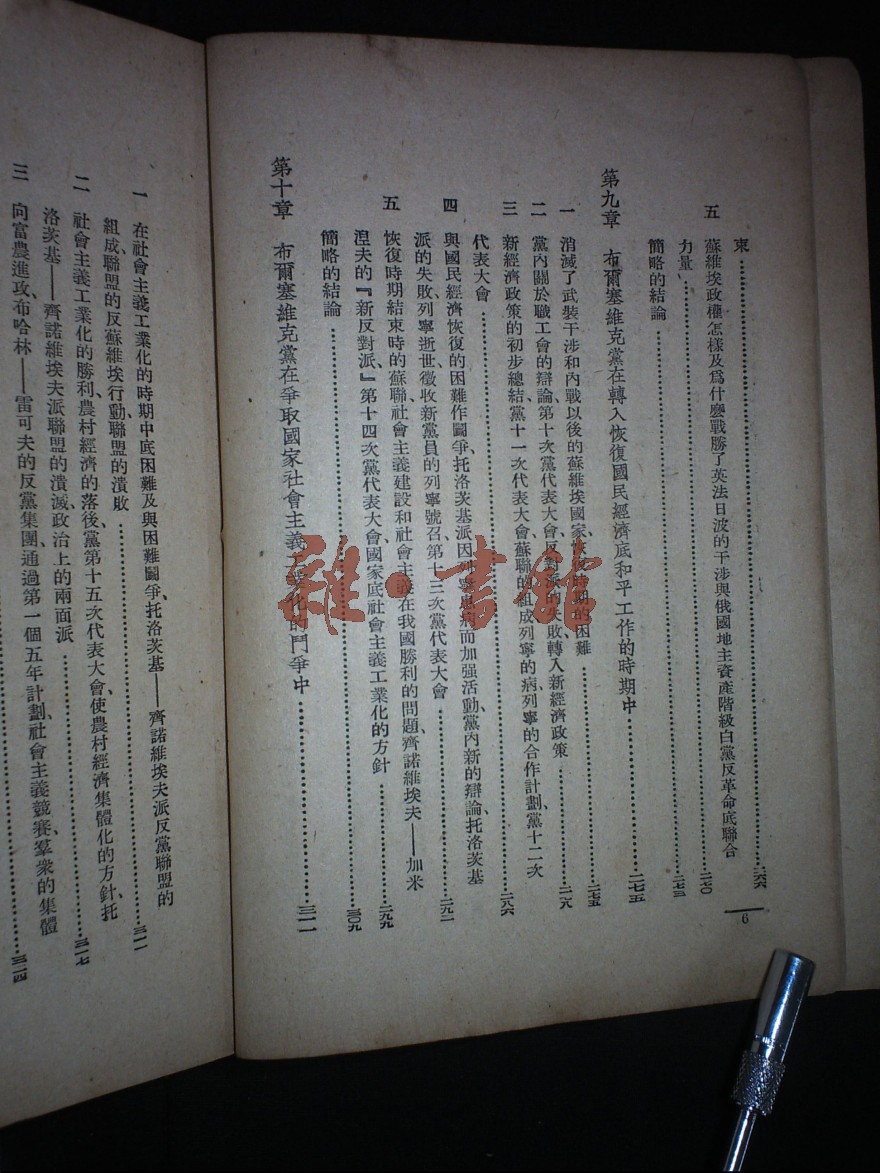 束……二六六
五 蘇維埃政權怎樣及爲什麼戰勝了英法日波的干涉與俄國地主資產階級白黨反革命底聯合
力量……二七〇
簡略的結論……二七三
第九章 布爾塞維克黨在轉入恢復國民經濟底和平工作的時期中……二七五
一 消滅了武裝干涉和內戰以後的蘇維埃國家、恢復時期的困難……二七五
二 黨內關於職工會的辯論、第十次黨代表大會、反對派的失敗、轉入新經濟政策
三 新經濟政策的初步總結、黨十一次代表大會、蘇聯的組成、列寧的病、列寧的合作計劃、黨十二次
代表大會……二八六
四 與國民經濟恢復的困難作鬭爭、托洛茨基派因列寧患病而加强活動、黨內新的辯論、托洛茨基
派的失敗、列寧逝世、徵收新黨員的列寧號召、第十三次黨代表大會……二九二
五 恢復時期結束時的蘇聯、社會主義建設和社會主義在我國勝利的問題、齊諾維埃夫——加米
湼夫的『新反對派』、第十四次黨代表大會、國家底社會主義工業化的方針……二九九
簡略的結論……三〇九
第十章 布爾塞維克黨在爭取國家社會主義工業化的鬥爭中……三一一
6
一 在社會主義工業化的時期中底困難及與困難鬭爭、托洛茨基——齊諾維埃夫派反黨聯盟的
組成、聯盟的反蘇維埃行動、聯盟的潰敗……三一一
二 社會主義工業化的勝利、農村經濟的落後、黨第十五次代表大會、使農村經濟集體化的方針、托
洛茨基——齊諾維埃夫派聯盟的潰滅、政治上的兩面派……三一七
三 向富農進攻、布哈林——雷可夫的反黨集團、通過第一個五年計劃、社會主義競賽、羣衆的集體
……三二四
雅·書館